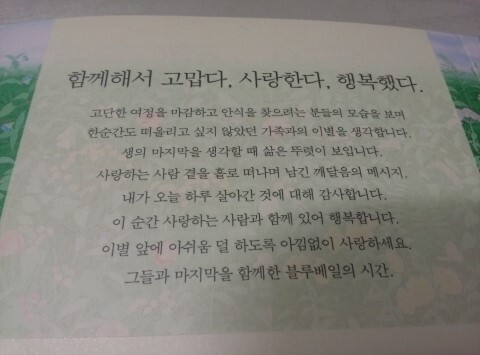 함께해서 고맙다. 사랑한다. 행복했다.
고단한 여정을 마감하고 안식을 찾으려는 분들의 모습을 보며
한순간도 떠올리고 싶지 않았던 가족과의 이별을 생각합니다.
생의 마지막을 생각할 때 삶은 뚜렷이 보입니다.
사랑하는 사람 곁을 홀로 떠나며 남긴 깨달음의 메시지.
내가 오늘 하루 살아간 것에 대해 감사합니다.
이 순간 사랑하는 사람과 함께 있어 행복합니다.
이별 앞에 아쉬움 덜 하도록 아낌없이 사랑하세요.
그들과 마지막을 함께한 블루베일의 시간.